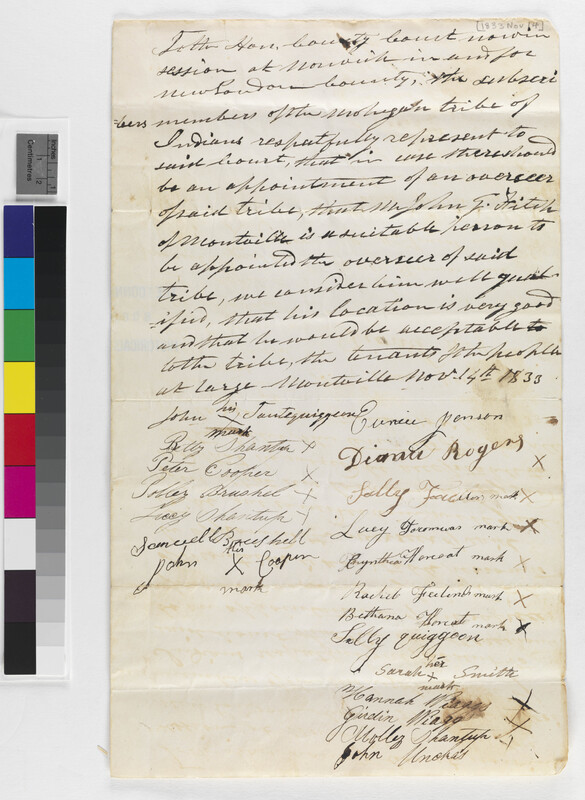 [1833 Nov 14]
To the Hon, County Court now in
session at Norwich in and for
New London County, the subscri
bers members of the Mohegan tribe of
Indians respatfully represent to
said Court, that in case there should
be an appointment of an overseer
of said tribe, that Mr John G. Fitch
of Montville is a suitable person to
be appointed the overseer of said
tribe, we consider him well qual-
ified, that his location is very good
and that he would be acceptable to
to the tribe, the tenants & the people
at large Montville Nov. 14th 1833
John his Tantequiggeon
mark
Betty Shantup X
Peter Cooper X
Polley Brushel X
Lucy Shantup X
Samuell Brushell
John his X Cooper
mark
Eunice
Dianah Rogers X
Sally mark X
Lucy mark X
Cynthia Hoscoat mark X
Rachel mark X
Bethana Hoscoat mark X
Sally quiggeon
Sarah her X Smith
mark
Hannah X
Wiago X
Molley Shantup X
John Uncas
Centimetres